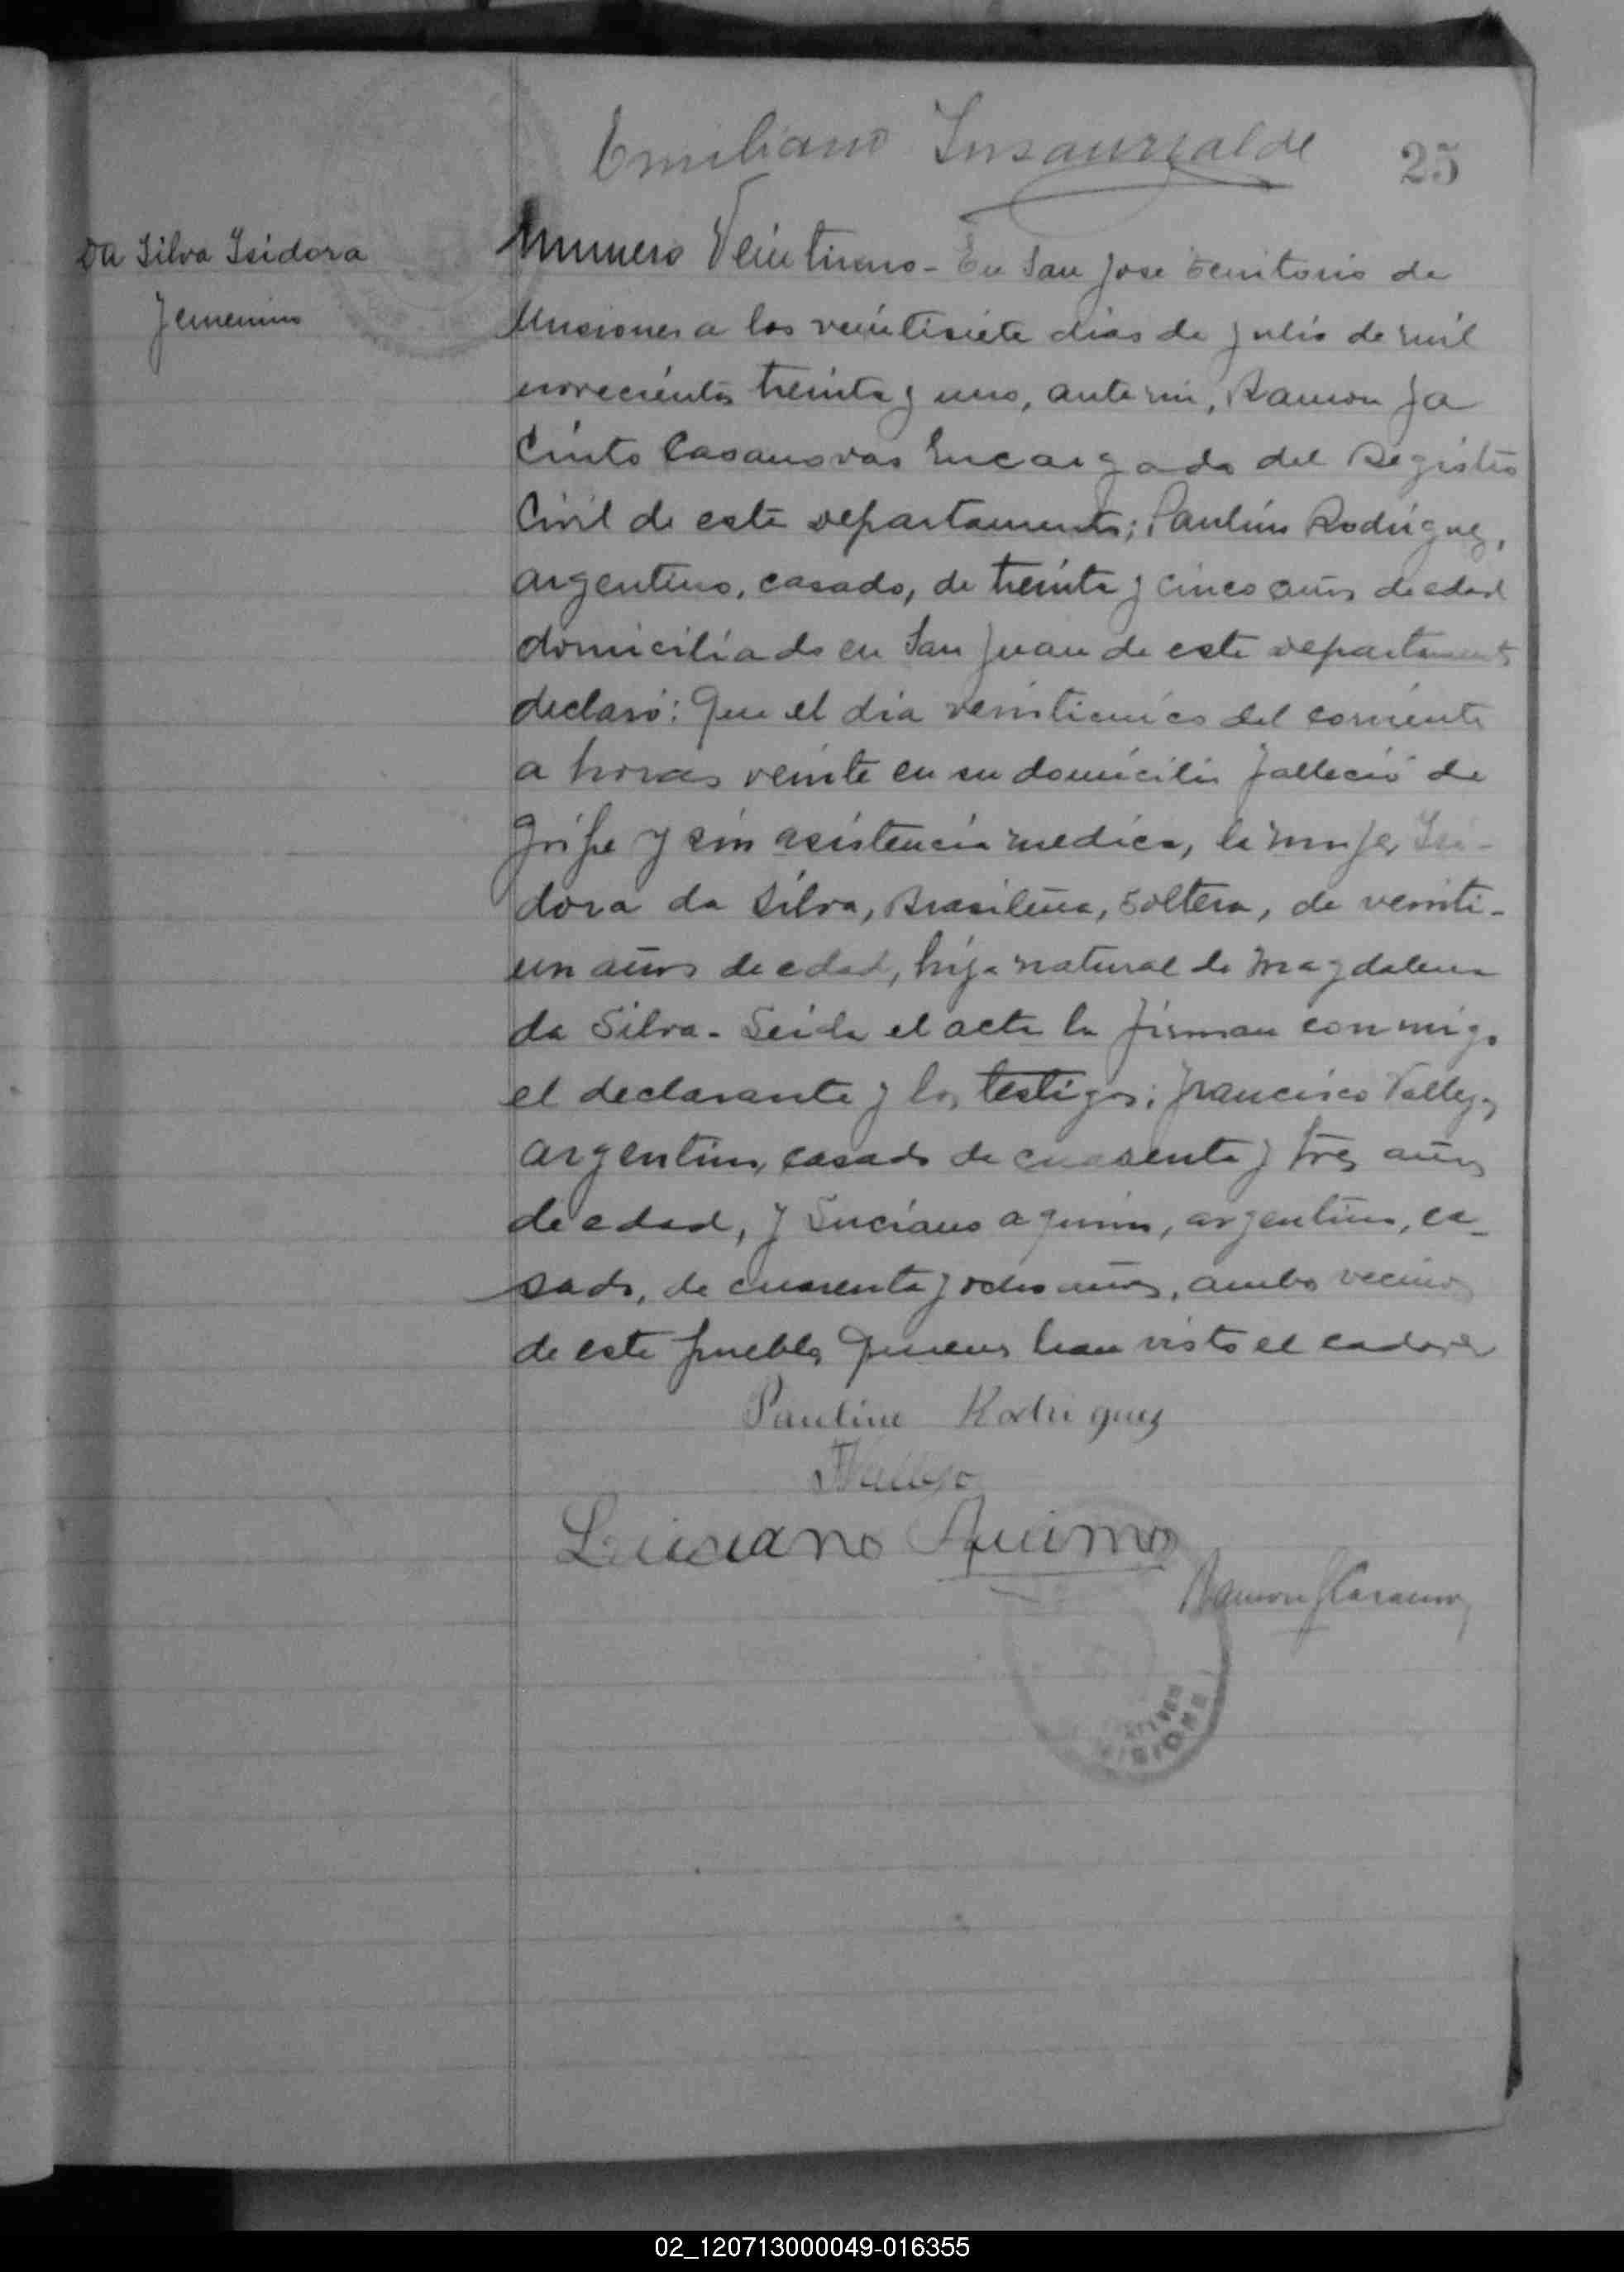 Emiliano Insaurralde
25
Da Silva Isidora
Femenino
Numero Veintiuno - En San Jose territorio de
Misiones a los veintisiete dias de julio de mil
novecientos treinta y uno, ante mi, Ramon Ja
cinto Casanovas Encargado del Registro
Civil de este departamento; Paulino Rodriguez,
argentino, casado, de treinta y cinco años de edad
domiciliado en San Juan de este departamento
declaró: Que el dia veinticinco del corriente
a horas veinte en su domicilio falleció de
Gripe y sin asistencia medica, la mujer Isi-
dora da Silva, Brasileña, soltera, de veinti-
un años de edad, hija natural de Magdalena
da Silva - Leida el acta la firman conmigo
el declarante y los testigos: Francisco Vallejos
argentino, casado de cuarenta y tres años
de edad, y Luciano Aquino, argentino, ca-
sado, de cuarenta y ocho años, ambos vecinos
de este pueblo, quienes han visto el cadaver
Paulino Rodriguez
Luciano Aquino
MISIONES
02_120713000049-016355